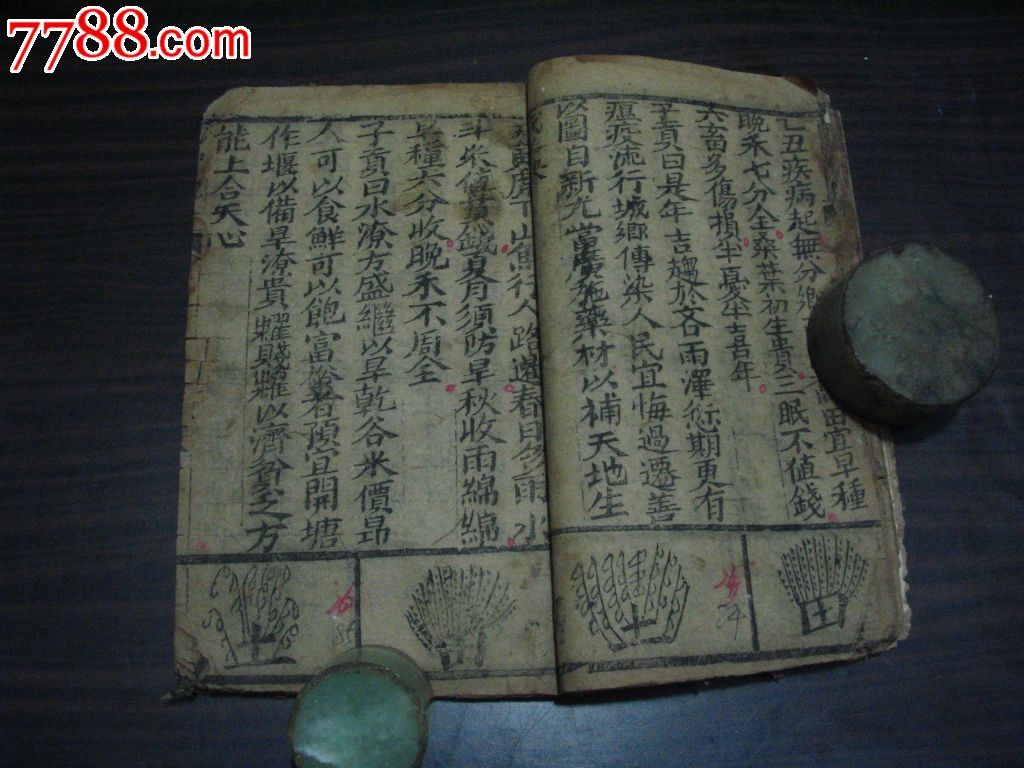 7788.com
乙丑疾病起無分鄉
田宜早種
晚禾七分全桒葉初生貴三眠不值錢
六畜多傷損半憂半喜年
子貢曰是年吉趨於吝雨澤愆期更有
瘟疫流行城鄉傳染人民宜悔過遷善
以圖自新尤當廣施藥材以補天地生
魚行人路邊春日多雨水
斗米值夏月須防旱秋收雨綿綿
早種六分收晚禾不周全
子貢曰水潦方盛繼以旱乾谷米價昂
人可以食鮮可以飽富裕者預宜開塘
作堰以備旱潦貴糴賤糶以濟貧乏之方
能上合天心
土